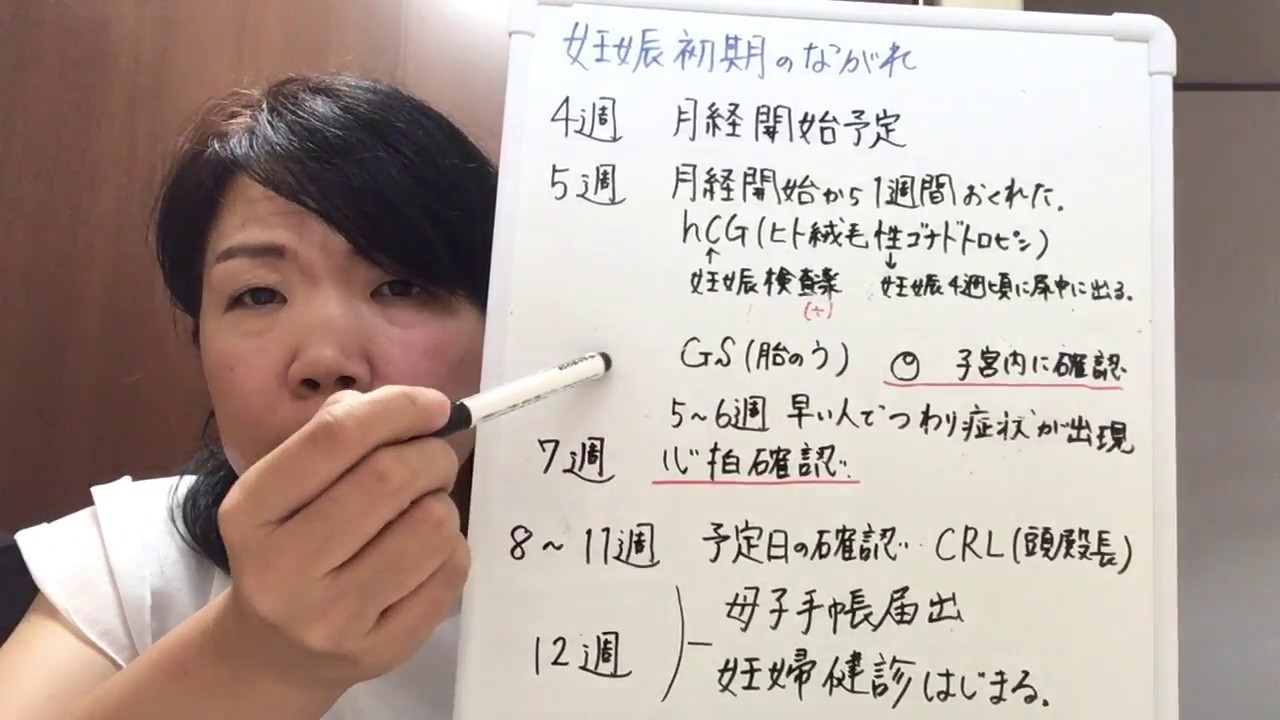 妊娠初期のながれ
4週 月経開始予定
5週 月経開始から1週間おくれた。
hCG(ヒト絨毛性ゴナドトロピン)
↑ ↓
妊娠検査薬 妊娠4週頃に尿中に出る。
(+)
GS(胎のう) 子宮内に確認
5~6週 早い人でつわり症状が出現
7週 心拍確認
8~11週 予定日の確認 CRL(頭殿長)
母子手帳届出
12週
妊婦健診はじまる。